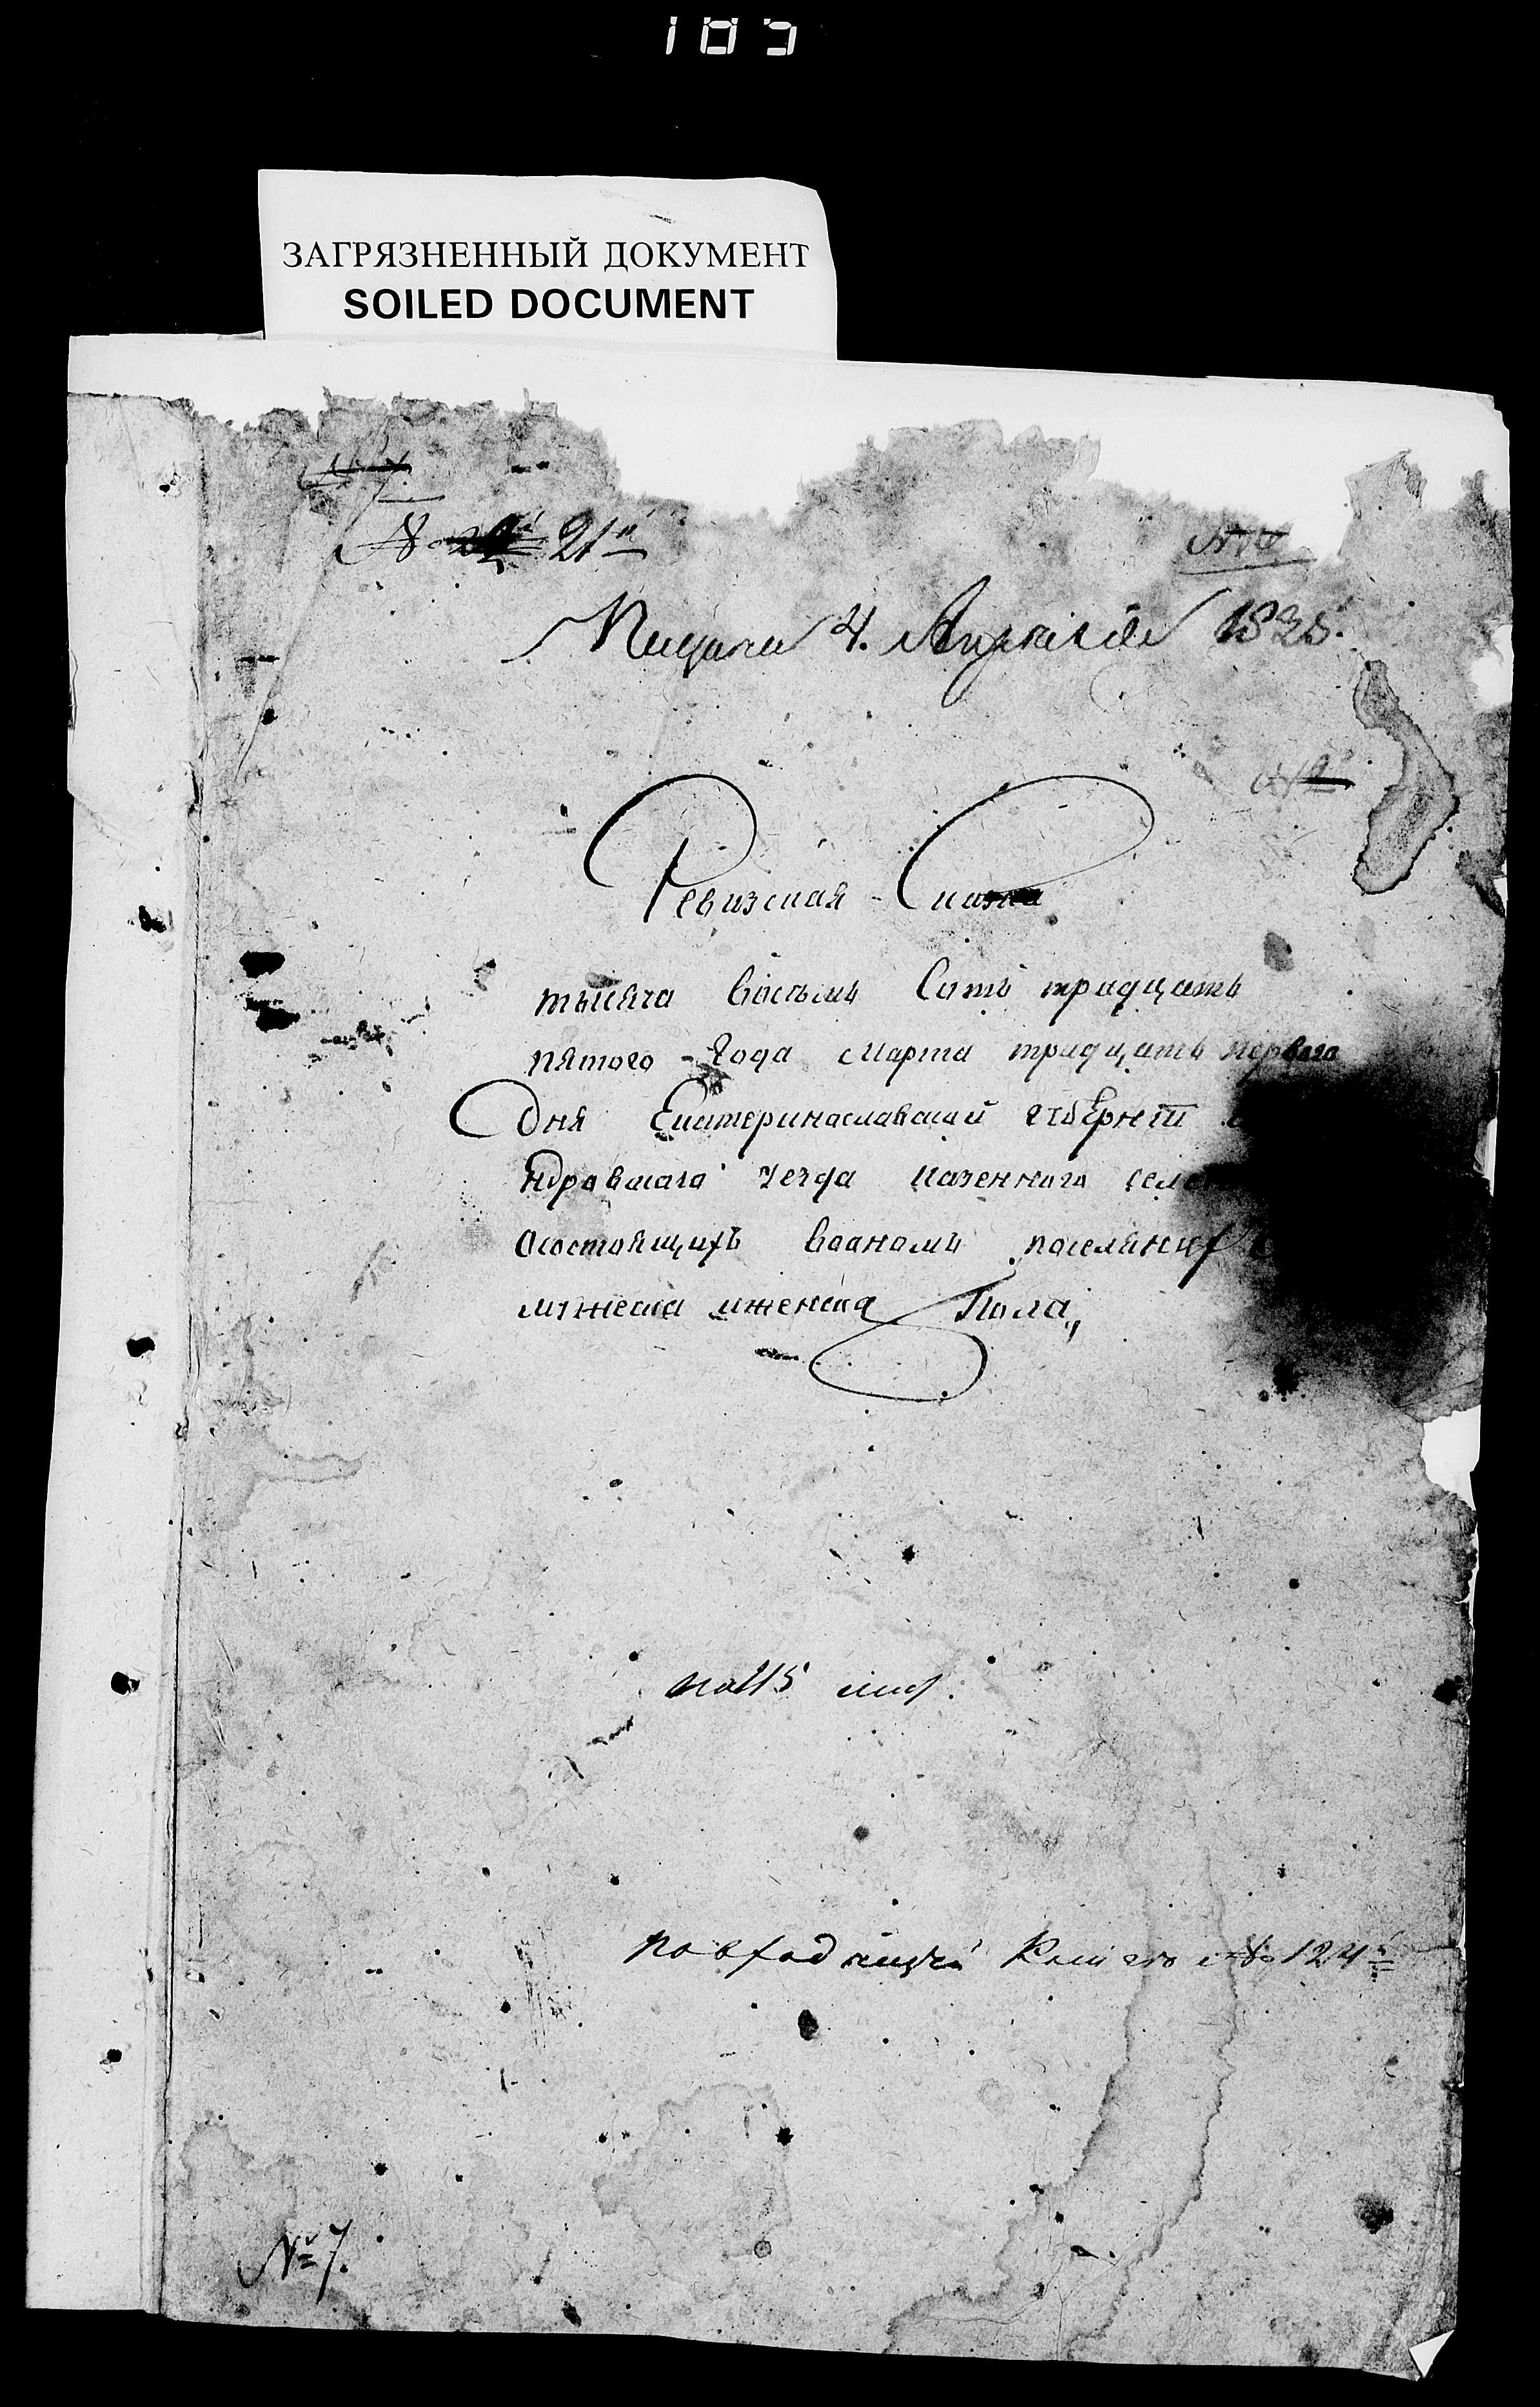 185
ЗАГРЯЗНЕННЫЙ ДОКУМЕНТ
SOILED DOCUMENT
№ 21й
4. Апреля 1835.
Ревизская Сказка
тысяча восъемь Сотъ тридцать
пятого Года Марта тридцать первого
Дня Екатеринаславский губерніи
ндровскаго уезда казенного
Осостоящихъ воаномъ
мужеска иженска Пола„
на 115
Повходящей №о 124й
№ 7.